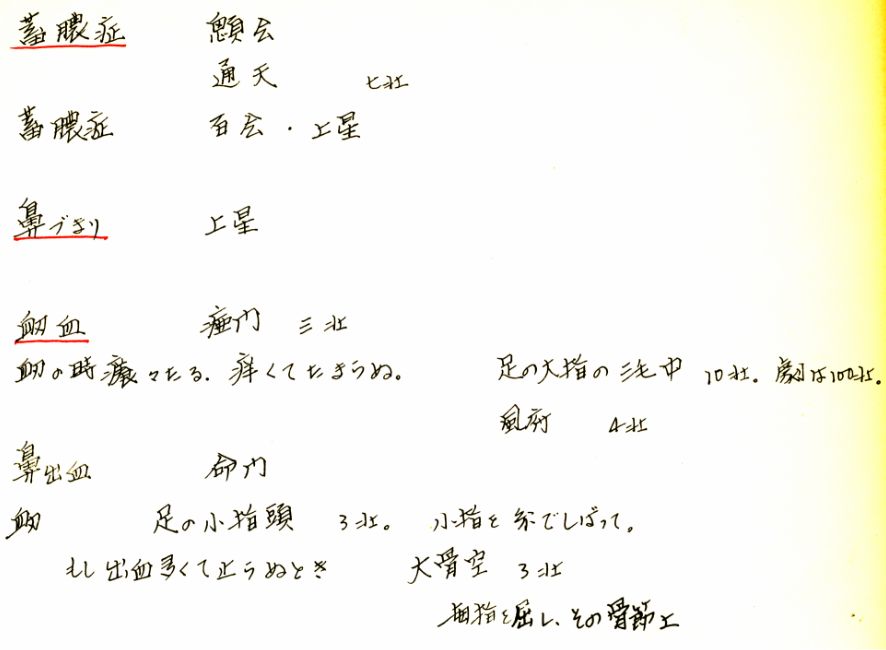 蓄膿症　顖会
通天　七壮
蓄膿症　百会・上星
鼻づまり　上星
衄血　瘂門　三壮
衄の時痒々たる、痒くてたまらぬ。　足の大指の三毛中　10壮。劇は100壮。
風府　4壮
鼻出血　命門
衄　足の小指頭　3壮。　小指を糸でしばって。
もし出血多くて止らぬとき　大骨空　3壮
拇指を屈し、その骨節上